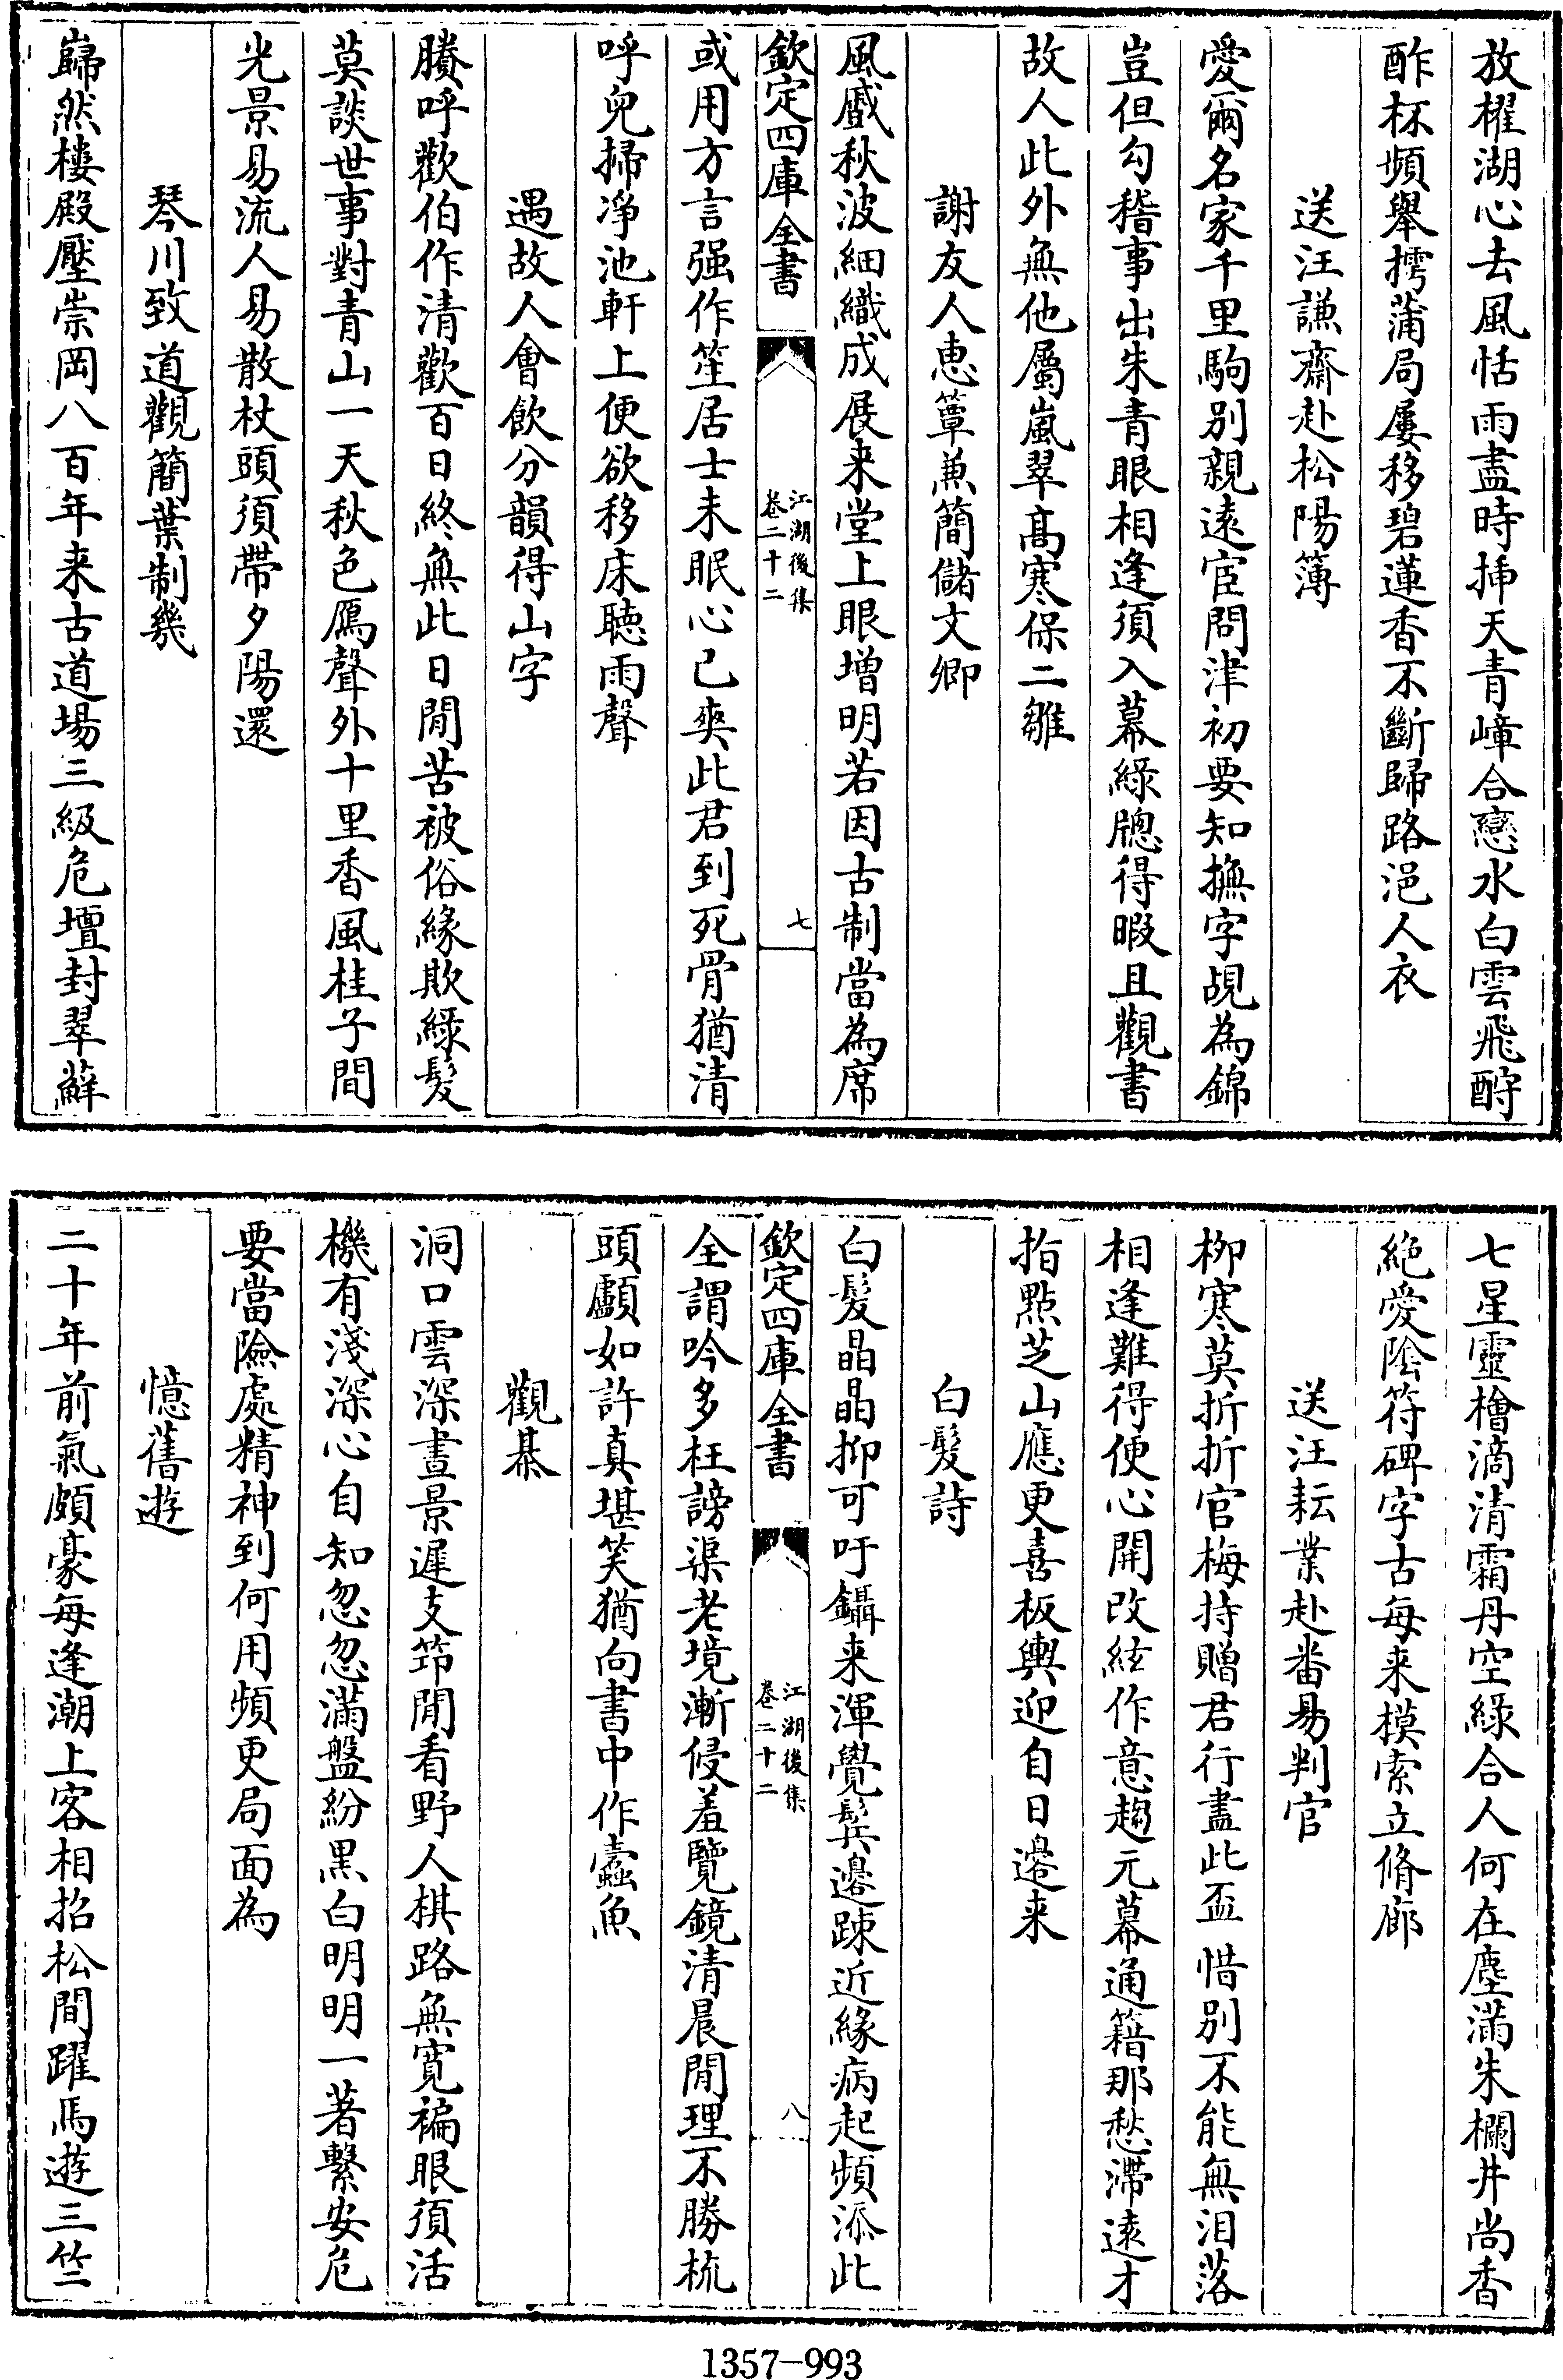 放櫂湖心去風恬雨盡時揷天青嶂合戀水白雲飛酧
酢杯頻舉摴蒲局屢移碧蓮香不斷歸路浥人衣
送汪謙齋赴松陽簿
愛爾名家千里駒別親遠宦問津初要知撫字覘為錦
豈但勾稽事出朱青眼相逢須入幕綠牕得暇且觀書
故人此外無他屬嵐翠髙寒保二雛
謝友人惠簟兼簡儲文卿
風戲秋波細織成展来堂上眼增明若因古制當為席
欽定四庫全書
江湖後集
卷二十二
七
或用方言强作笙居士未眠心已爽此君到死骨猶清
呼兒掃凈池軒上便欲移床聽雨聲
遇故人會飲分韻得山字
賸呼歡伯作清歡百日終無此日閒苦被俗緣欺綠髮
莫談世事對青山一天秋色鴈聲外十里香風桂子間
光景易流人易散杖頭須帶夕陽還
琴川致道觀簡葉制幾
巋然樓殿壓崇岡八百年来古道場三級危壇封翠蘚
七星靈檜滴清霜丹空綠合人何在塵滿朱欄井尚香
絕愛陰符碑字古每来模索立脩廊
送汪耘業赴番易判官
柳寒莫折折官梅持贈君行盡此盃惜別不能無泪落
相逢難得便心開改絃作意趨元幕通籍那愁滯遠才
指點芝山應更喜板輿迎自日邉来
白髮詩
白髮晶晶抑可吁鑷来渾覺鬂邉踈近緣病起頻添此
欽定四庫全書
江湖後集
卷二十二
八
全謂吟多枉謗渠老境漸侵羞覽鏡清晨閒理不勝梳
頭顱如許真堪笑猶向書中作蠧魚
觀棊
洞口雲深晝景遲支笻閒看野人棋路無寛褊眼須活
機有淺深心自知忽忽滿盤紛黒白明明一著繫安危
要當險處精神到何用頻更局面為
憶舊遊
二十年前氣頗豪每逢潮上客相招松間躍馬遊三竺
1357-993